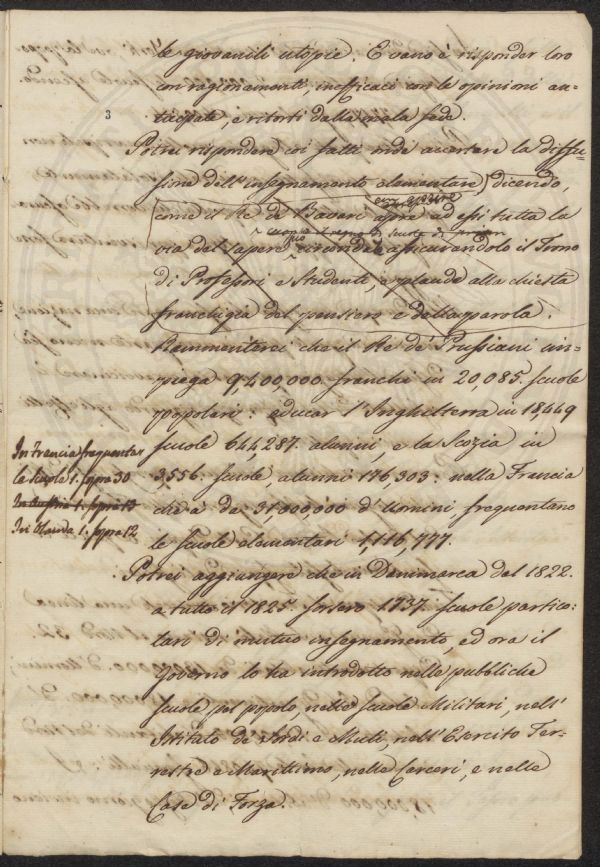 le giovanili utopie. E vano è risponder loro
con ragionamenti, inefficaci con le opinioni an=
3
ticipate, e ritorti dalla mala fede.
Potrei rispondere coi fatti onde accertare la diffu=
sione dell'insegnamento elementare, dicendo,
come il Re de' Bavari apra ad essi tutta la
via del sapere circonda assicurandolo il Trono
di Professori e Studenti, e plaude alla chiesta
franchigia del pensiero e della parola.
Rammenterei che il Re de' Prussiani im=
piega 9,400,000 franchi in 20,085. scuole
popolari: educar l'Inghilterra in 18449
scuole 644287. alunni, e la Scozia in
3,556. scuole, alunni 176,303: nella Francia
che a da 31,000,000 d'Uomini frequentano
le scuole elementari 1,116,777.
In Francia frequentar
le scuole 1. sopra 30
In Austria 1. sopra 13
In Olanda 1. sopra 12
Potrei aggiungere che in Danimarca dal 1822.
a tutto il 1825. sorsero 1737. scuole partico=
lari di mutuo insegnamento, ed ora il
Governo lo ha introdotto nelle pubbliche
scuole pel popolo, nelle scuole Militari, nell'
Istituto de' Sordi e Muti, nell'Esercito Ter=
restre e Marittimo, nelle Carceri, e nelle
Case di Forza.